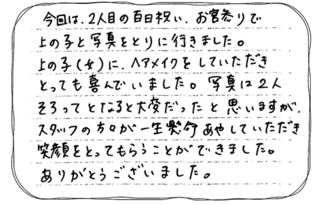 今回は、2人目の百日祝い、お宮参りで
上の子と写真をとりに行きました。
上の子(女)に、ヘアメイクをしていただき
とっても喜んでいました。写真は2人
そろってとなると大変だったと思いますが、
スタッフの方々が一生懸命あやしていただき
笑顔をとってもらうことができました。
ありがとうございました。